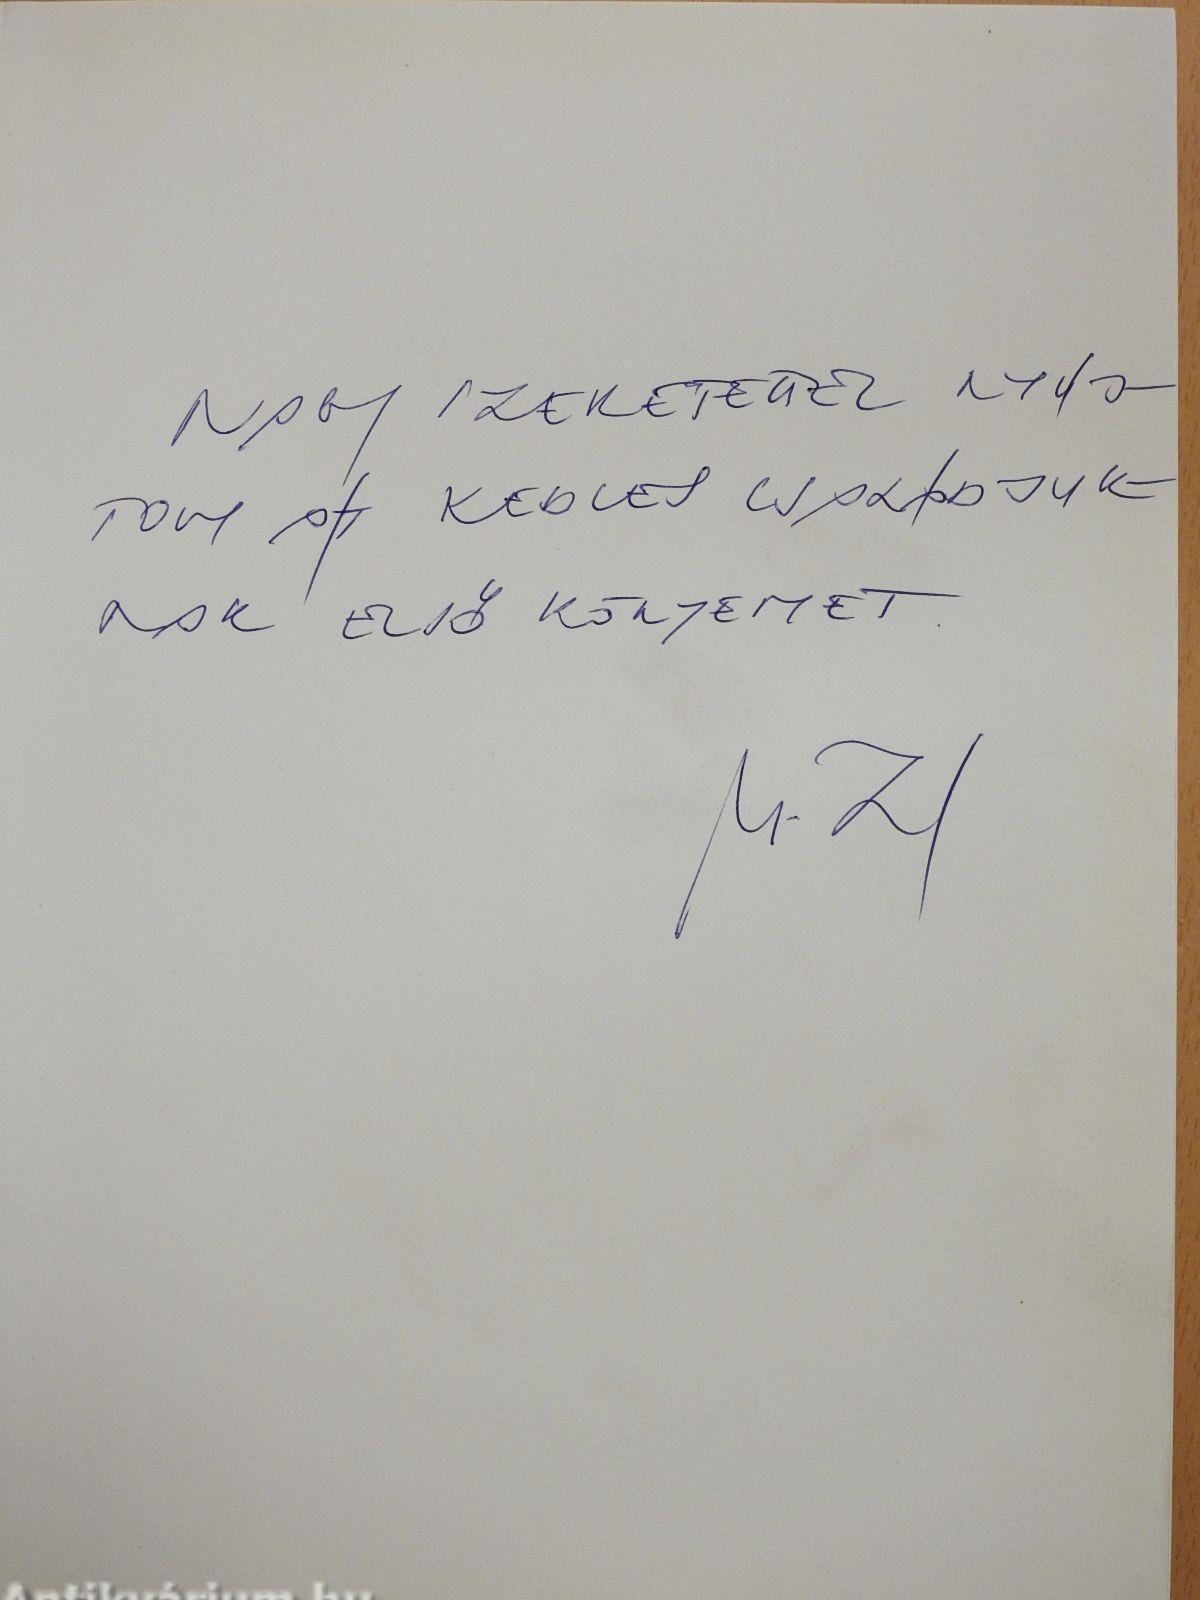 NAGY SZERETETTEL NYÚJ
TOM ÁT KEDVES CSALÁDJUK
NAK ELSŐ KÖNYVEMET.
Antikvárium.hu